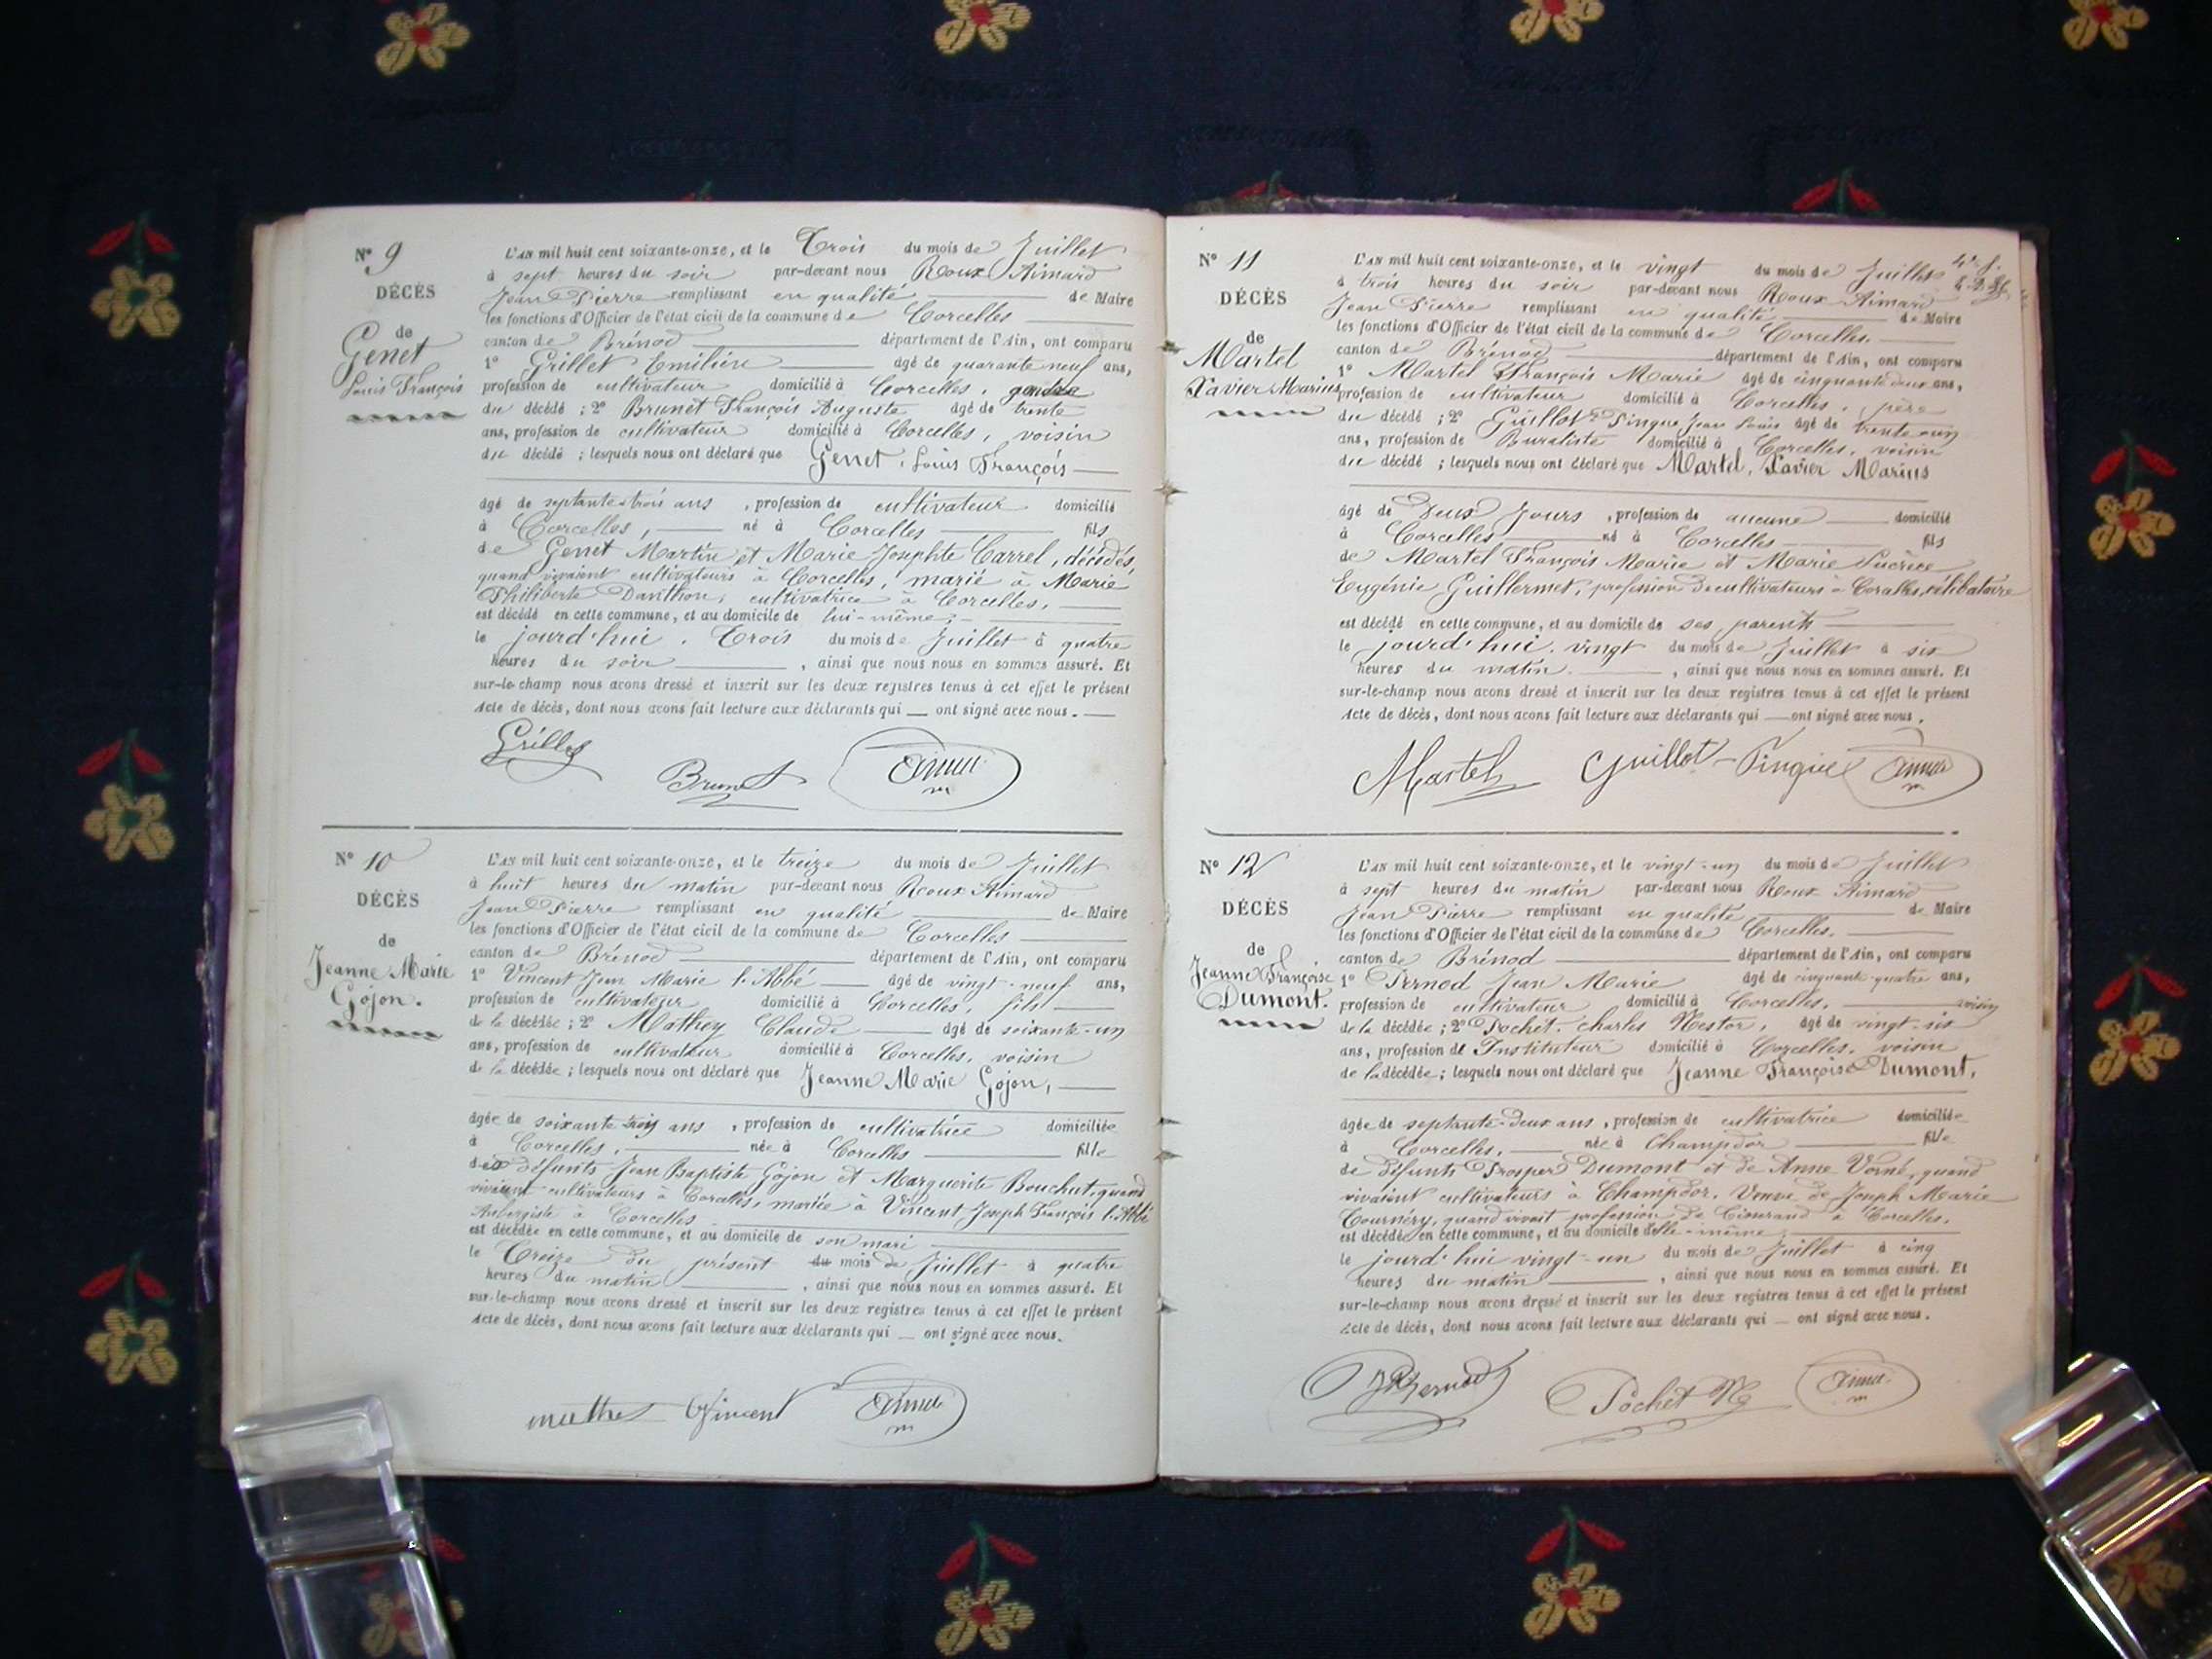 Nº 9
DÉCÈS
de
Genet
Louis François
L'AN mil huit cent soixante-onze, et le Trois du mois de Juillet
à sept heures du soir par-devant nous Roux Aimard
Jean Pierre remplissant en qualité de Maire
les fonctions d'Officier de l'état civil de la commune de Corcelles
canton de Brénod département de l'Ain, ont comparu
1º Grillet Emilien âgé de quarante neuf ans,
profession de cultivateur domicilié à Corcelles, gendre
du décédé ; 2º Brunet François Auguste âgé de trente
ans, profession de cultivateur domicilié à Corcelles, voisin
du décédé ; lesquels nous ont déclaré que Genet, Louis François
âgé de septante-trois ans , profession de cultivateur domicilié
à Corcelles, né à Corcelles fils
de Genet Martin et Marie Josephte Carrel, décédés,
quand vivaient cultivateurs à Corcelles, marié à Marie
Philiberte Darithon, cultivatrice à Corcelles,
est décédé en cette commune, et au domicile de lui-même,
le jourd'hui, Trois du mois de Juillet à quatre
heures du soir , ainsi que nous nous en sommes assuré. Et
sur-le-champ nous avons dressé et inscrit sur les deux registres tenus à cet effet le présent
Acte de décès, dont nous avons fait lecture aux déclarants qui — ont signé avec nous.
Grillet
Brunet
Nº 10
DÉCÈS
de
Jeanne Marie
Gojon.
L'AN mil huit cent soixante-onze, et le treize du mois de Juillet
à huit heures du matin par-devant nous Roux Aimard
Jean Pierre remplissant en qualité de Maire
les fonctions d'Officier de l'état civil de la commune de Corcelles
canton de Brénod département de l'Ain, ont comparu
1º Vincent Jean Marie l'Abbé âgé de vingt-neuf ans,
profession de cultivateur domicilié à Corcelles, fils
de la décédée ; 2º Mathey Claude âgé de soixante-un
ans, profession de cultivateur domicilié à Corcelles, voisin
de la décédée ; lesquels nous ont déclaré que Jeanne Marie Gojon,
âgée de soixante-trois ans , profession de cultivatrice domiciliée
à Corcelles, née à Corcelles fille
des défunts Jean Baptiste Gojon et Marguerite Bouchut, quand
vivaient cultivateurs à Corcelles, mariée à Vincent Joseph François l'Abbé
Aubergiste à Corcelles
est décédée en cette commune, et au domicile de son mari
le Treize du présent du mois de Juillet à quatre
heures du matin , ainsi que nous nous en sommes assuré. Et
sur-le-champ nous avons dressé et inscrit sur les deux registres tenus à cet effet le présent
Acte de décès, dont nous avons fait lecture aux déclarants qui — ont signé avec nous.
Vincent
Nº 11
DÉCÈS
de
Martel
Xavier Marius
L'AN mil huit cent soixante-onze, et le vingt du mois de Juillet
à trois heures du soir par-devant nous Roux Aimard
Jean Pierre remplissant en qualité de Maire
les fonctions d'Officier de l'état civil de la commune de Corcelles
canton de Brénod département de l'Ain, ont comparu
1º Martel François Marie âgé de cinquante deux ans,
profession de cultivateur domicilié à Corcelles, père
du décédé ; 2º Guillot Pingue Jean Louis âgé de trente-un
ans, profession de Buraliste domicilié à Corcelles, voisin
du décédé ; lesquels nous ont déclaré que Martel, Xavier Marius
âgé de Deux Jours , profession de aucune domicilié
à Corcelles né à Corcelles fils
de Martel François Marie et Marie Lucrèce
Eugénie Guillermet, profession de cultivateurs à Corcelles, célibataire
est décédé en cette commune, et au domicile de ses parents
le jourd'hui, vingt du mois de Juillet à six
heures du matin. , ainsi que nous nous en sommes assuré. Et
sur-le-champ nous avons dressé et inscrit sur les deux registres tenus à cet effet le présent
Acte de décès, dont nous avons fait lecture aux déclarants qui — ont signé avec nous.
Martel Guillot-Pingue
Nº 12
DÉCÈS
de
Jeanne Françoise
Dumont.
L'AN mil huit cent soixante-onze, et le vingt-un du mois de Juillet
à sept heures du matin par-devant nous Roux Aimard
Jean Pierre remplissant en qualité de Maire
les fonctions d'Officier de l'état civil de la commune de Corcelles.
canton de Brénod département de l'Ain, ont comparu
1º Pernod Jean Marie âgé de cinquante-quatre ans,
profession de cultivateur domicilié à Corcelles, voisin
de la décédée ; 2º Pochet-charles Nestor, âgé de vingt-six
ans, profession de Instituteur domicilié à Corcelles, voisin
de la décédée ; lesquels nous ont déclaré que Jeanne Françoise Dumont,
âgée de septante-deux ans , profession de cultivatrice domiciliée
à Corcelles, née à Champdor fille
de défunts Prosper Dumont et de Anne Vorné, quand
vivaient cultivateurs à Champdor. Veuve de Joseph Marie
Tournéry, quand vivait profession de à Corcelles.
est décédée en cette commune, et au domicile d'elle-même
le jourd'hui vingt-un du mois de Juillet à cinq
heures du matin , ainsi que nous nous en sommes assuré. Et
sur-le-champ nous avons dressé et inscrit sur les deux registres tenus à cet effet le présent
Acte de décès, dont nous avons fait lecture aux déclarants qui — ont signé avec nous.
Pernod
Pochet N